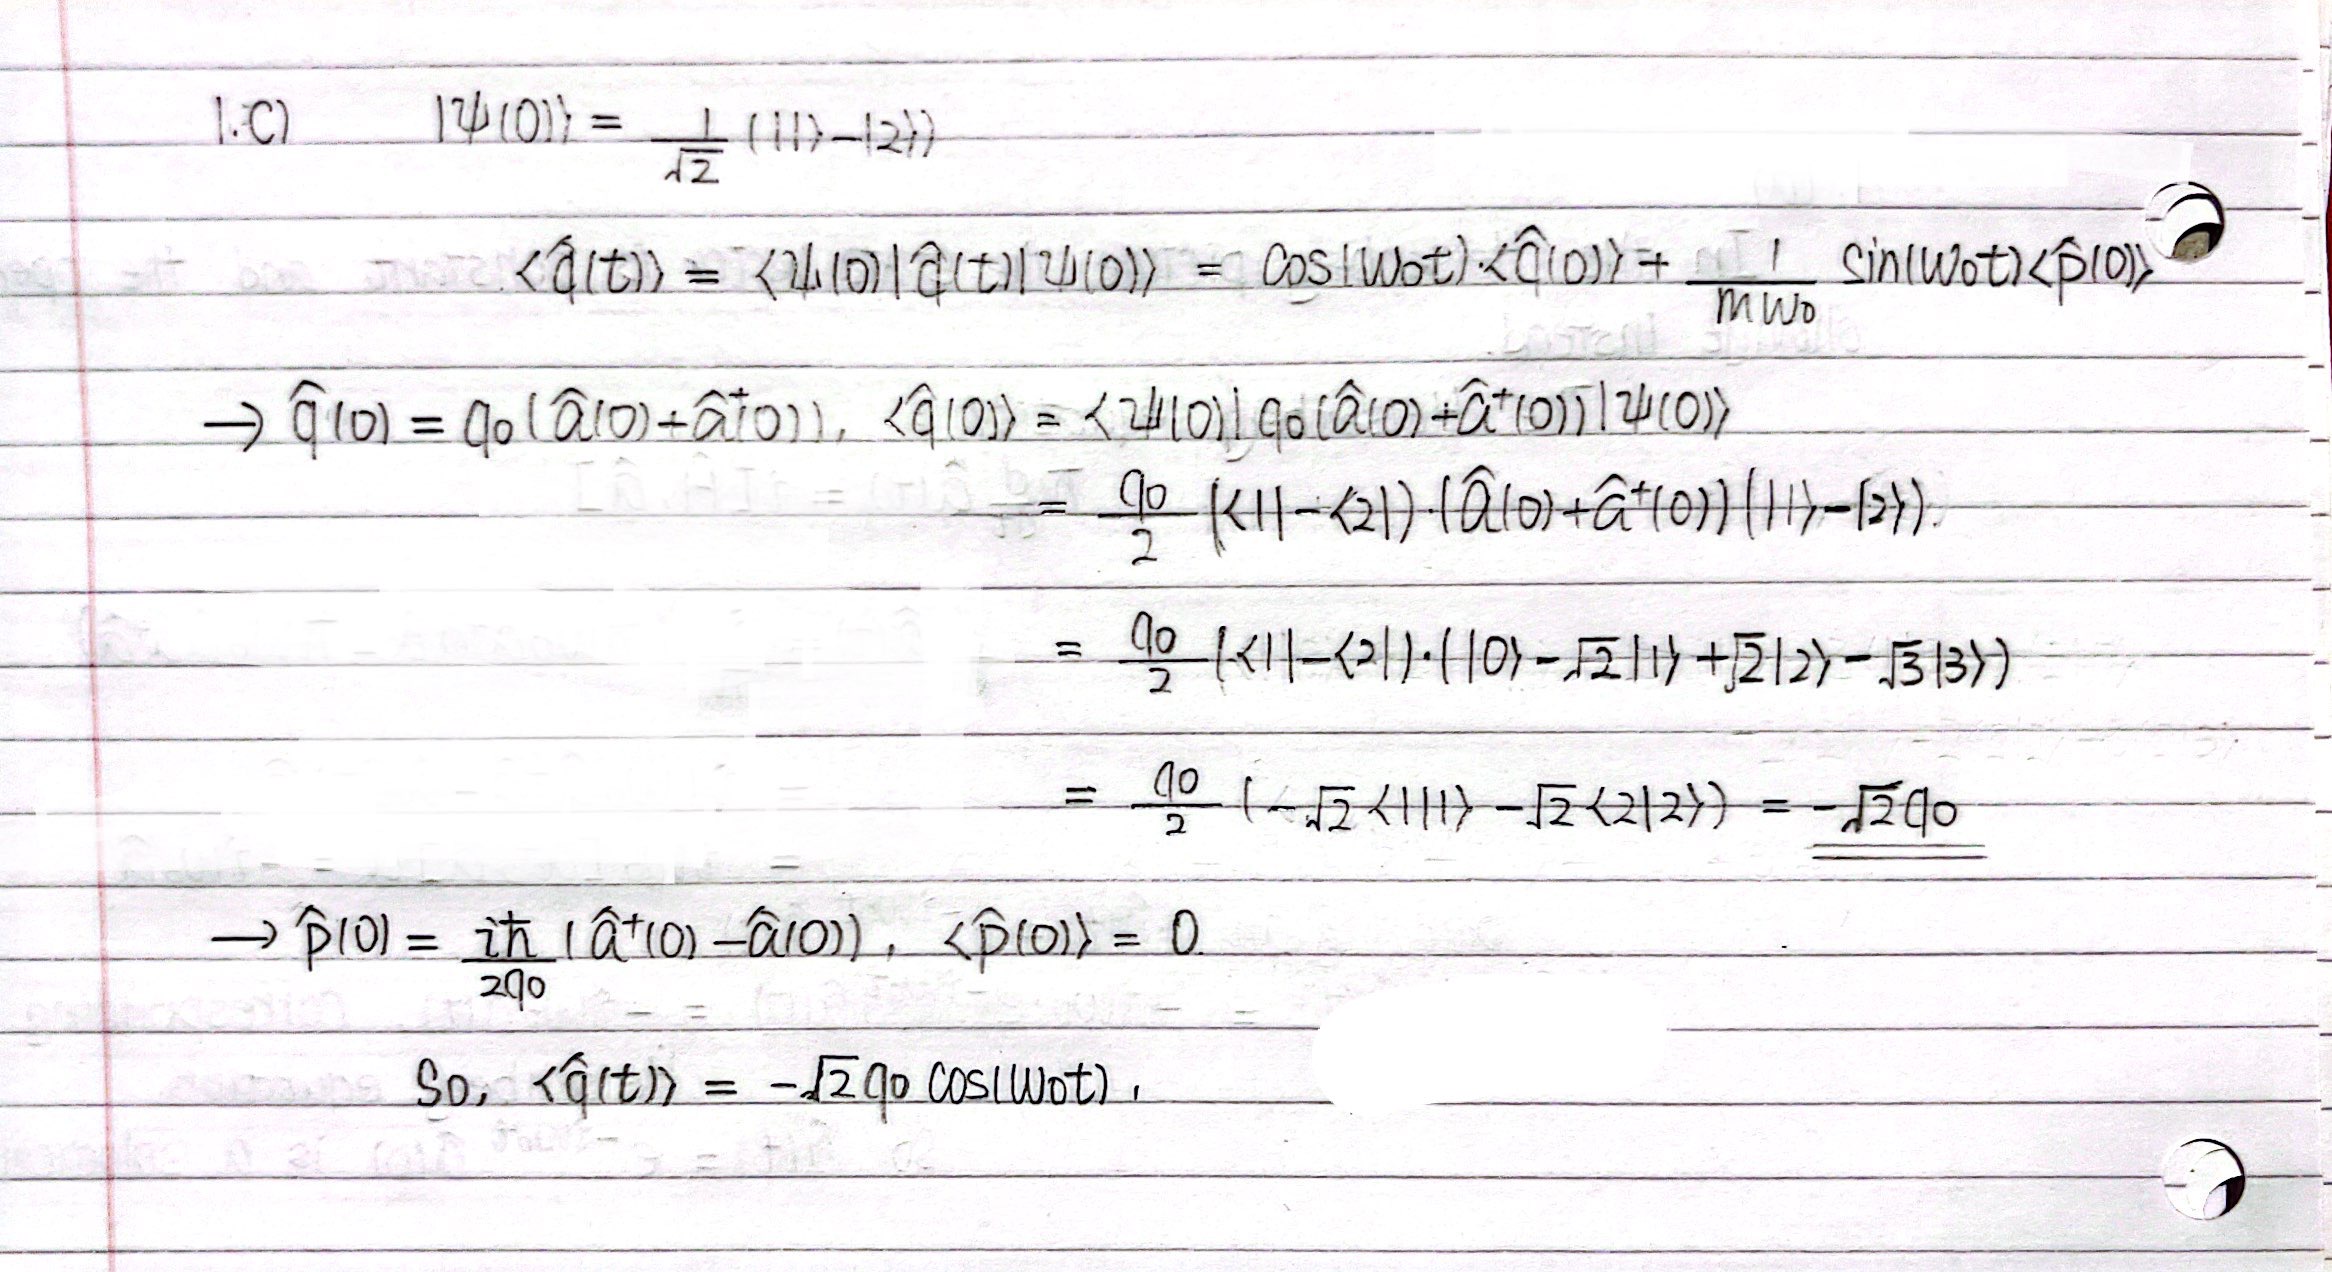 1.c) |ψ(0)⟩ = 1/√2 (|1⟩-|2⟩)
<q̂(t)> = <ψ(0)|q̂(t)|ψ(0)> = cos(ω₀t)·<q̂(0)> + 1/mω₀ sin(ω₀t)<p̂(0)>
→ q̂(0) = q₀(â(0)+â⁺(0)), <q̂(0)> = <ψ(0)|q₀(â(0)+â⁺(0))|ψ(0)>
= q₀/2 (<1|-<2|)·(â(0)+â⁺(0))(|1>-|2>).
= q₀/2 (<1|-<2|)·(|0>-√2|1>+√2|2>-√3|3>)
= q₀/2 (-√2<1|1>-√2<2|2>) = -√2q₀
→ p̂(0) = iħ/2q₀ (â⁺(0)-â(0)), <p̂(0)> = 0.
So, <q̂(t)> = -√2q₀cos(ω₀t).